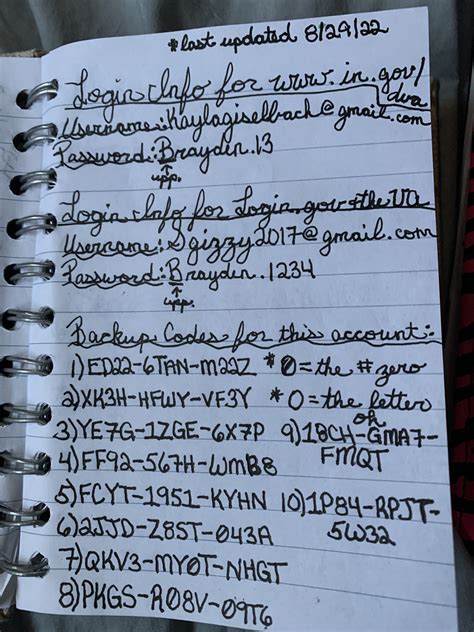 *last updated 8/29/22
Login Info for www.in.gov/
dva
Username: Kaylagiselbach@gmail.com
Password: Brayden.13
↑
upp.
Login Info for Login.gov + the VA
Username: Sgizzy2017@gmail.com
Password: Brayden.1234
↑
upp.
Backup Codes for this account:
1) ED22-6TAN-M22Z *0=the # zero
2) XK3H-HFWY-VF3Y *O=the letter
oh
3) YE7G-1ZGE-6X7P 9) 18CH-GMA7-
FMQT
4) FF92-567H-WMB8
5) FCYT-1951-KYHN 10) 1P84-RPJT-
5W32
6) 2JJD-Z8ST-043A
7) QKV3-MY0T-NHGT
8) PKGS-R08V-09T6